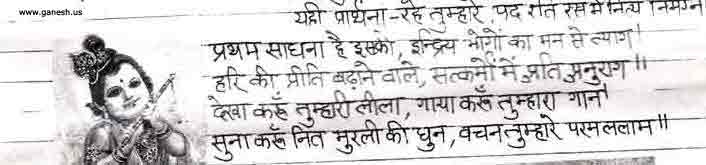 www.ganesh.us
यही प्रार्थना - रहे तुम्हारे, पद रति रस में नित्य निमग्न
प्रथम साधना है इसकी, इन्द्रिय भोगों का मन से त्याग।
हरि की प्रीति बढ़ाने वाले, सत्कर्मों में अति अनुराग॥
देखा करूँ तुम्हारी लीला, गाया करूँ तुम्हारा गान।
सुना करूँ नित मुरली की धुन, वचन तुम्हारे परम ललाम॥